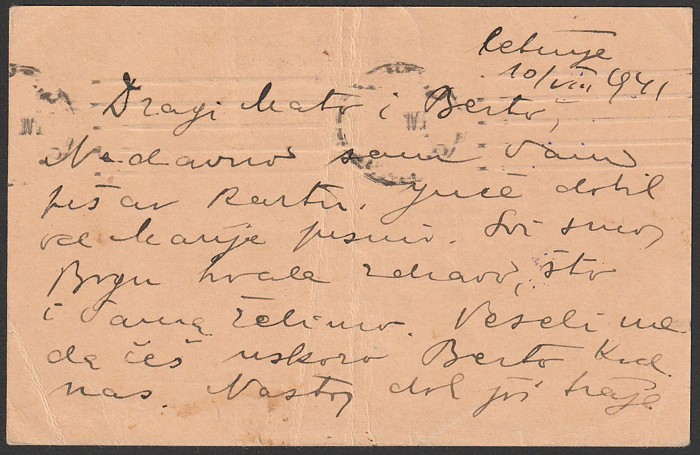 Cetinje
10/VIII 1941
Dragi Mato i Berto,
Nedavno sam Vam
pisao kartu. Juče dobil
od Marije pismo. Svi smo
Bogu hvala zdravo, što
i Vama želimo. Veseli me
da ćeš uskoro Berto kod
nas. Nastoj dok još traje